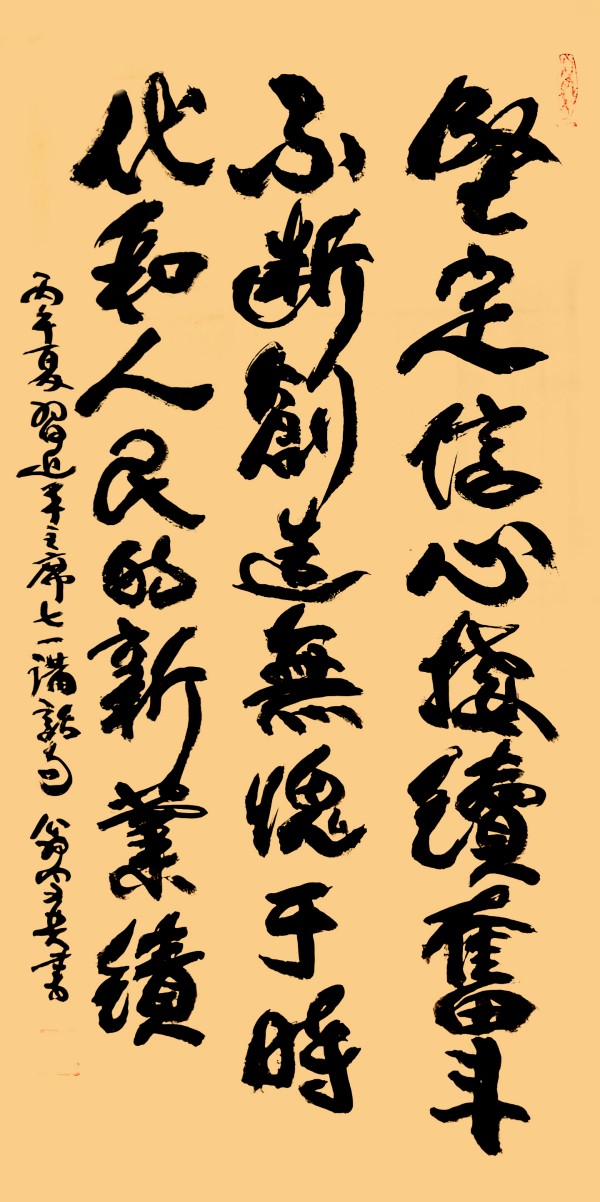 堅定信心接續奮斗
不斷創造無愧于時
代和人民的新業績
丙午夏習近平主席七一講話句 翁
書